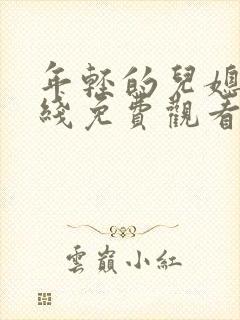 年轻的兒媳
綫免費觀看
雲巔小紅